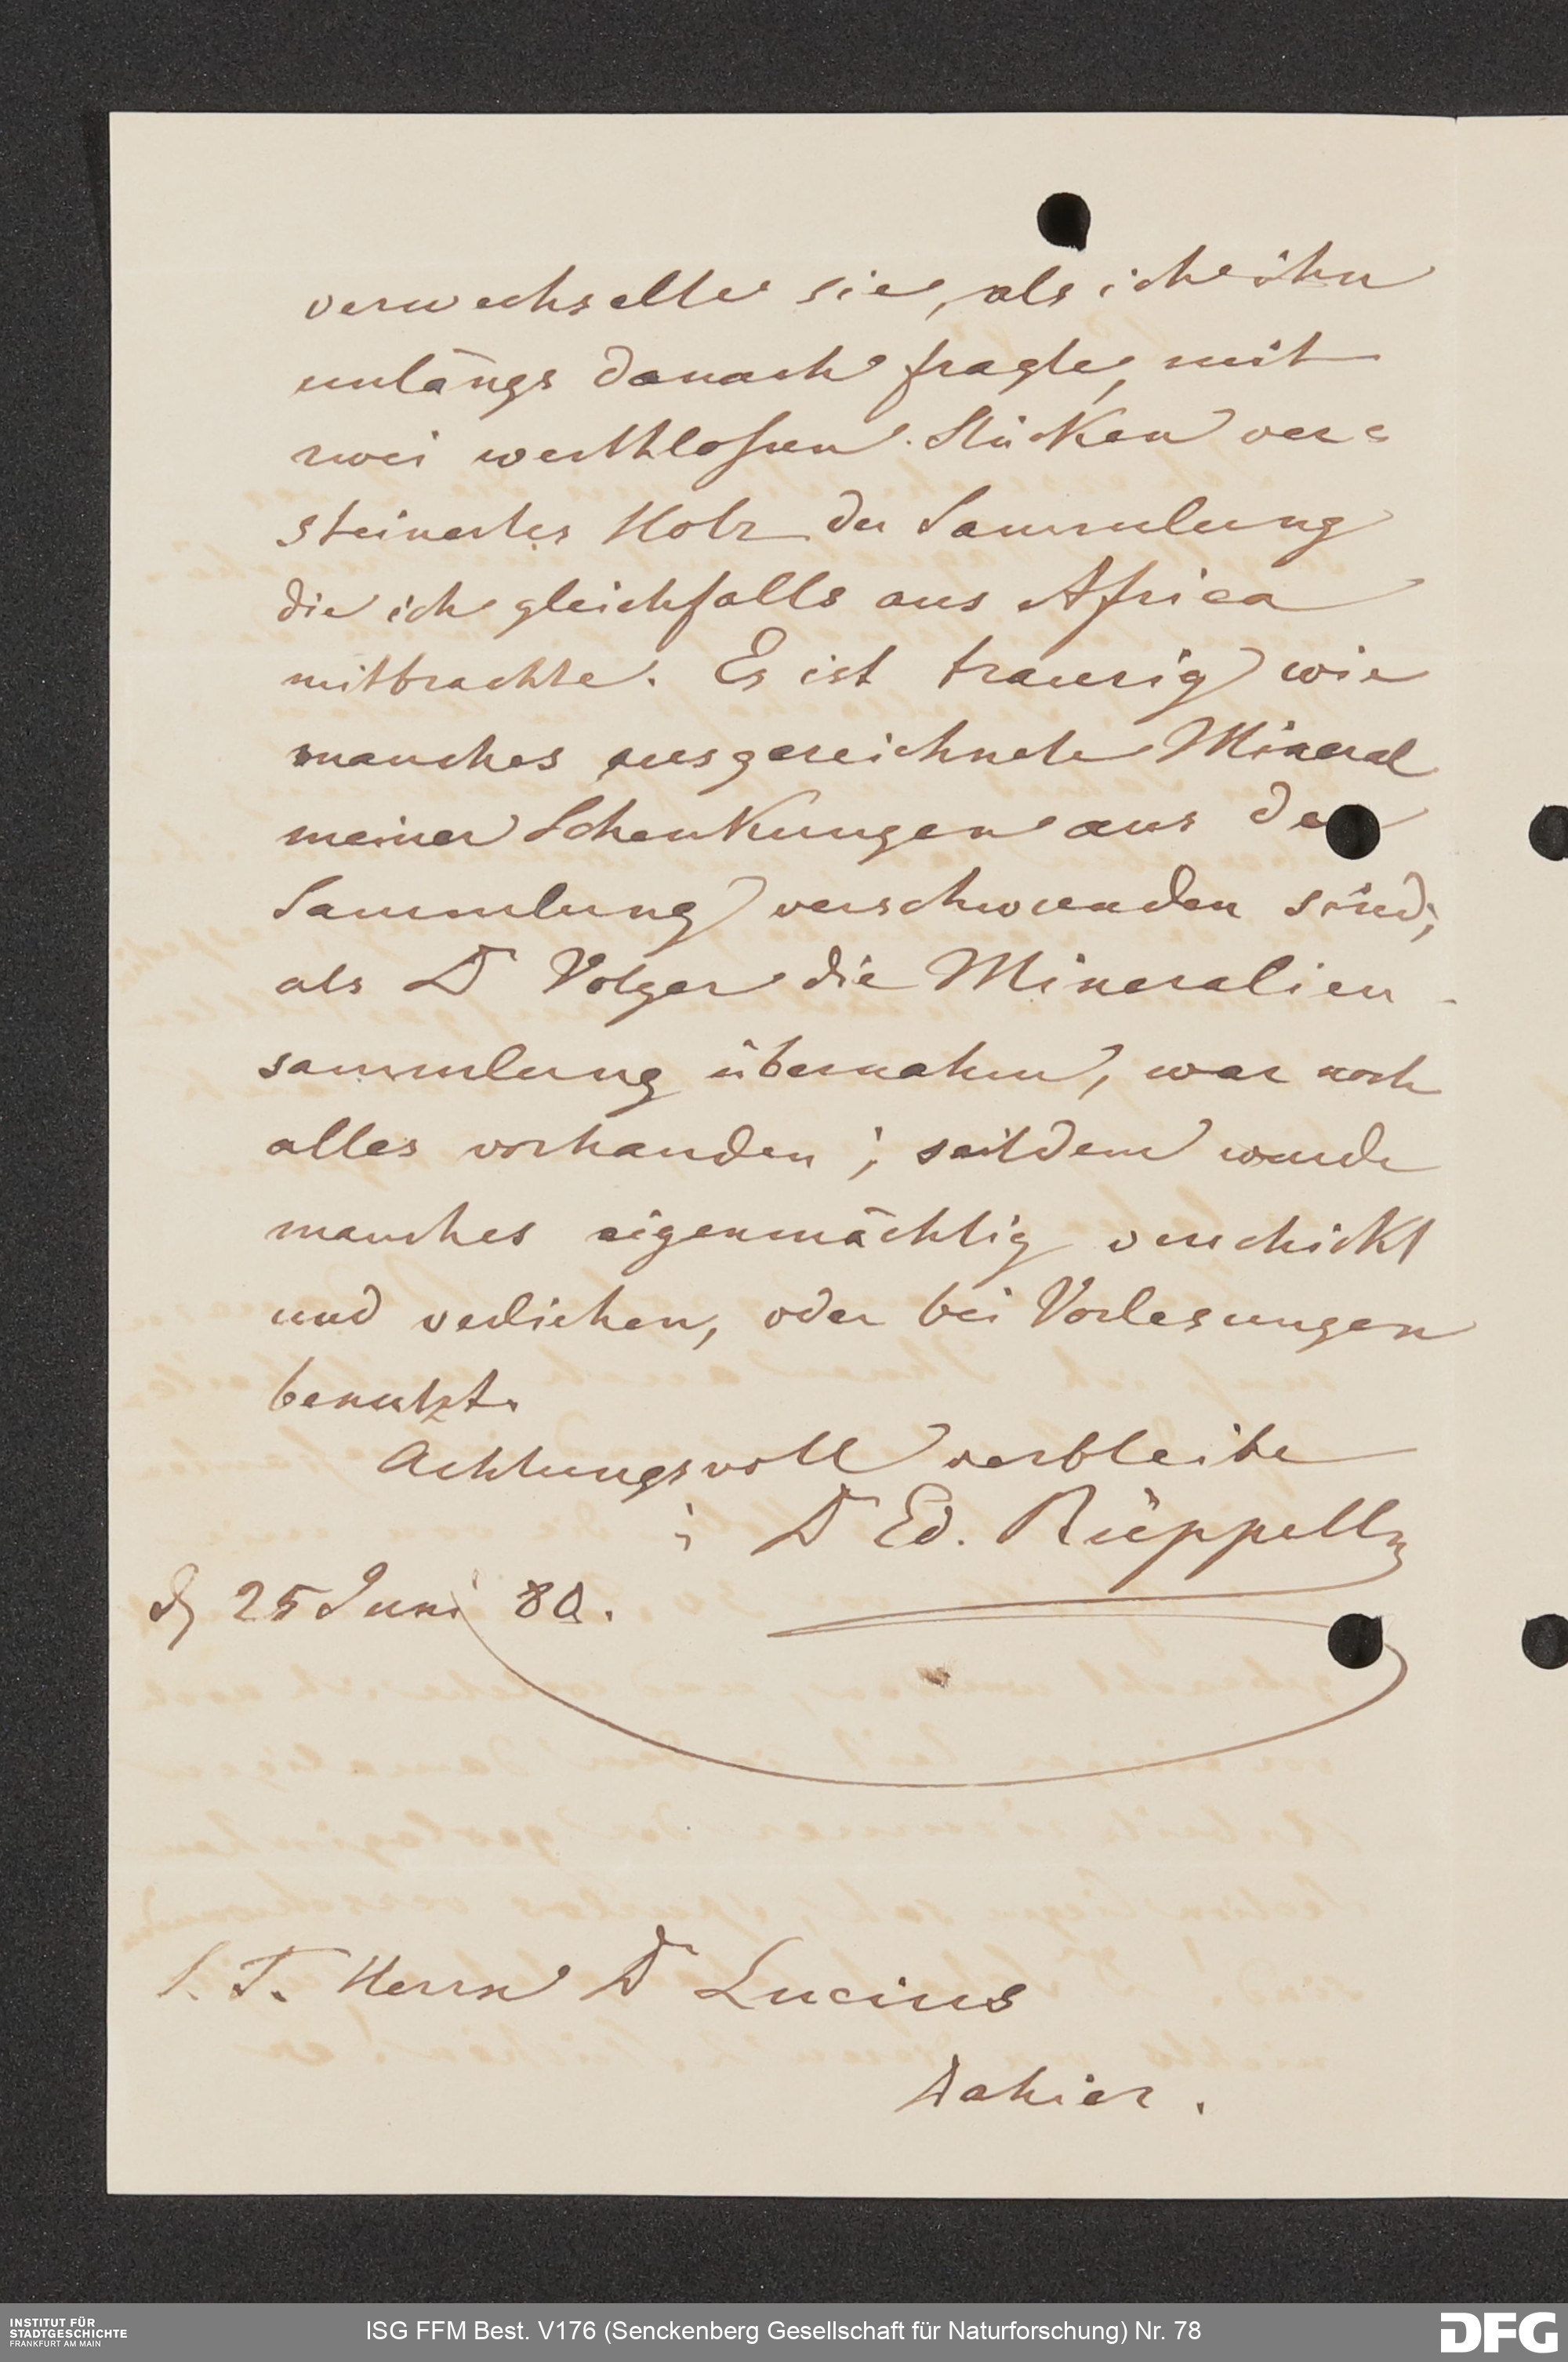 verwechselte sie, als ich ihn
unlängs danach fragte, mit
zwei werthlosen Stücken ver=
steinertes Holz der Sammlung
die ich gleichfalls aus Africa
mitbrachte. Es ist traurig wie
manches ausgezeichnete Mineral
meiner Schenkungen aus der
Sammlung verschwunden sind;
als Dr Volger die Mineralien-
sammlung übernahm, war noch
alles vorhanden; seitdem wurde
manches eigenmächtig verschickt
und verliehen, oder bei Vorlesungen
benutzt.
Achtungsvoll verbleibe
Dr Ed. Rüppell
25 Juni 80.
S. T. Herrn Dr Lucius
Dahier.
INSTITUT FÜR
STADTGESCHICHTE
FRANKFURT AM MAIN
ISG FFM Best. V176 (Senckenberg Gesellschaft für Naturforschung) Nr. 78
DFG